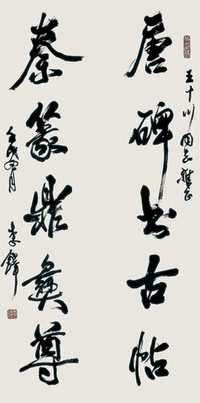 唐碑书古帖
王十川同志雅正
秦篆鼎彝尊
李铎